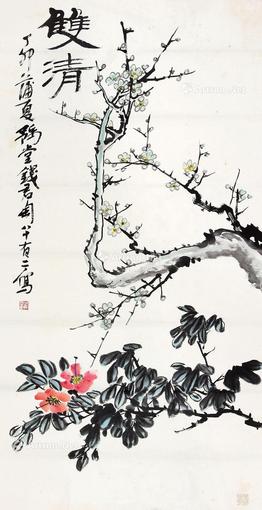 雙清
丁卯蒲夏豫堂錢君匋八十有二寫